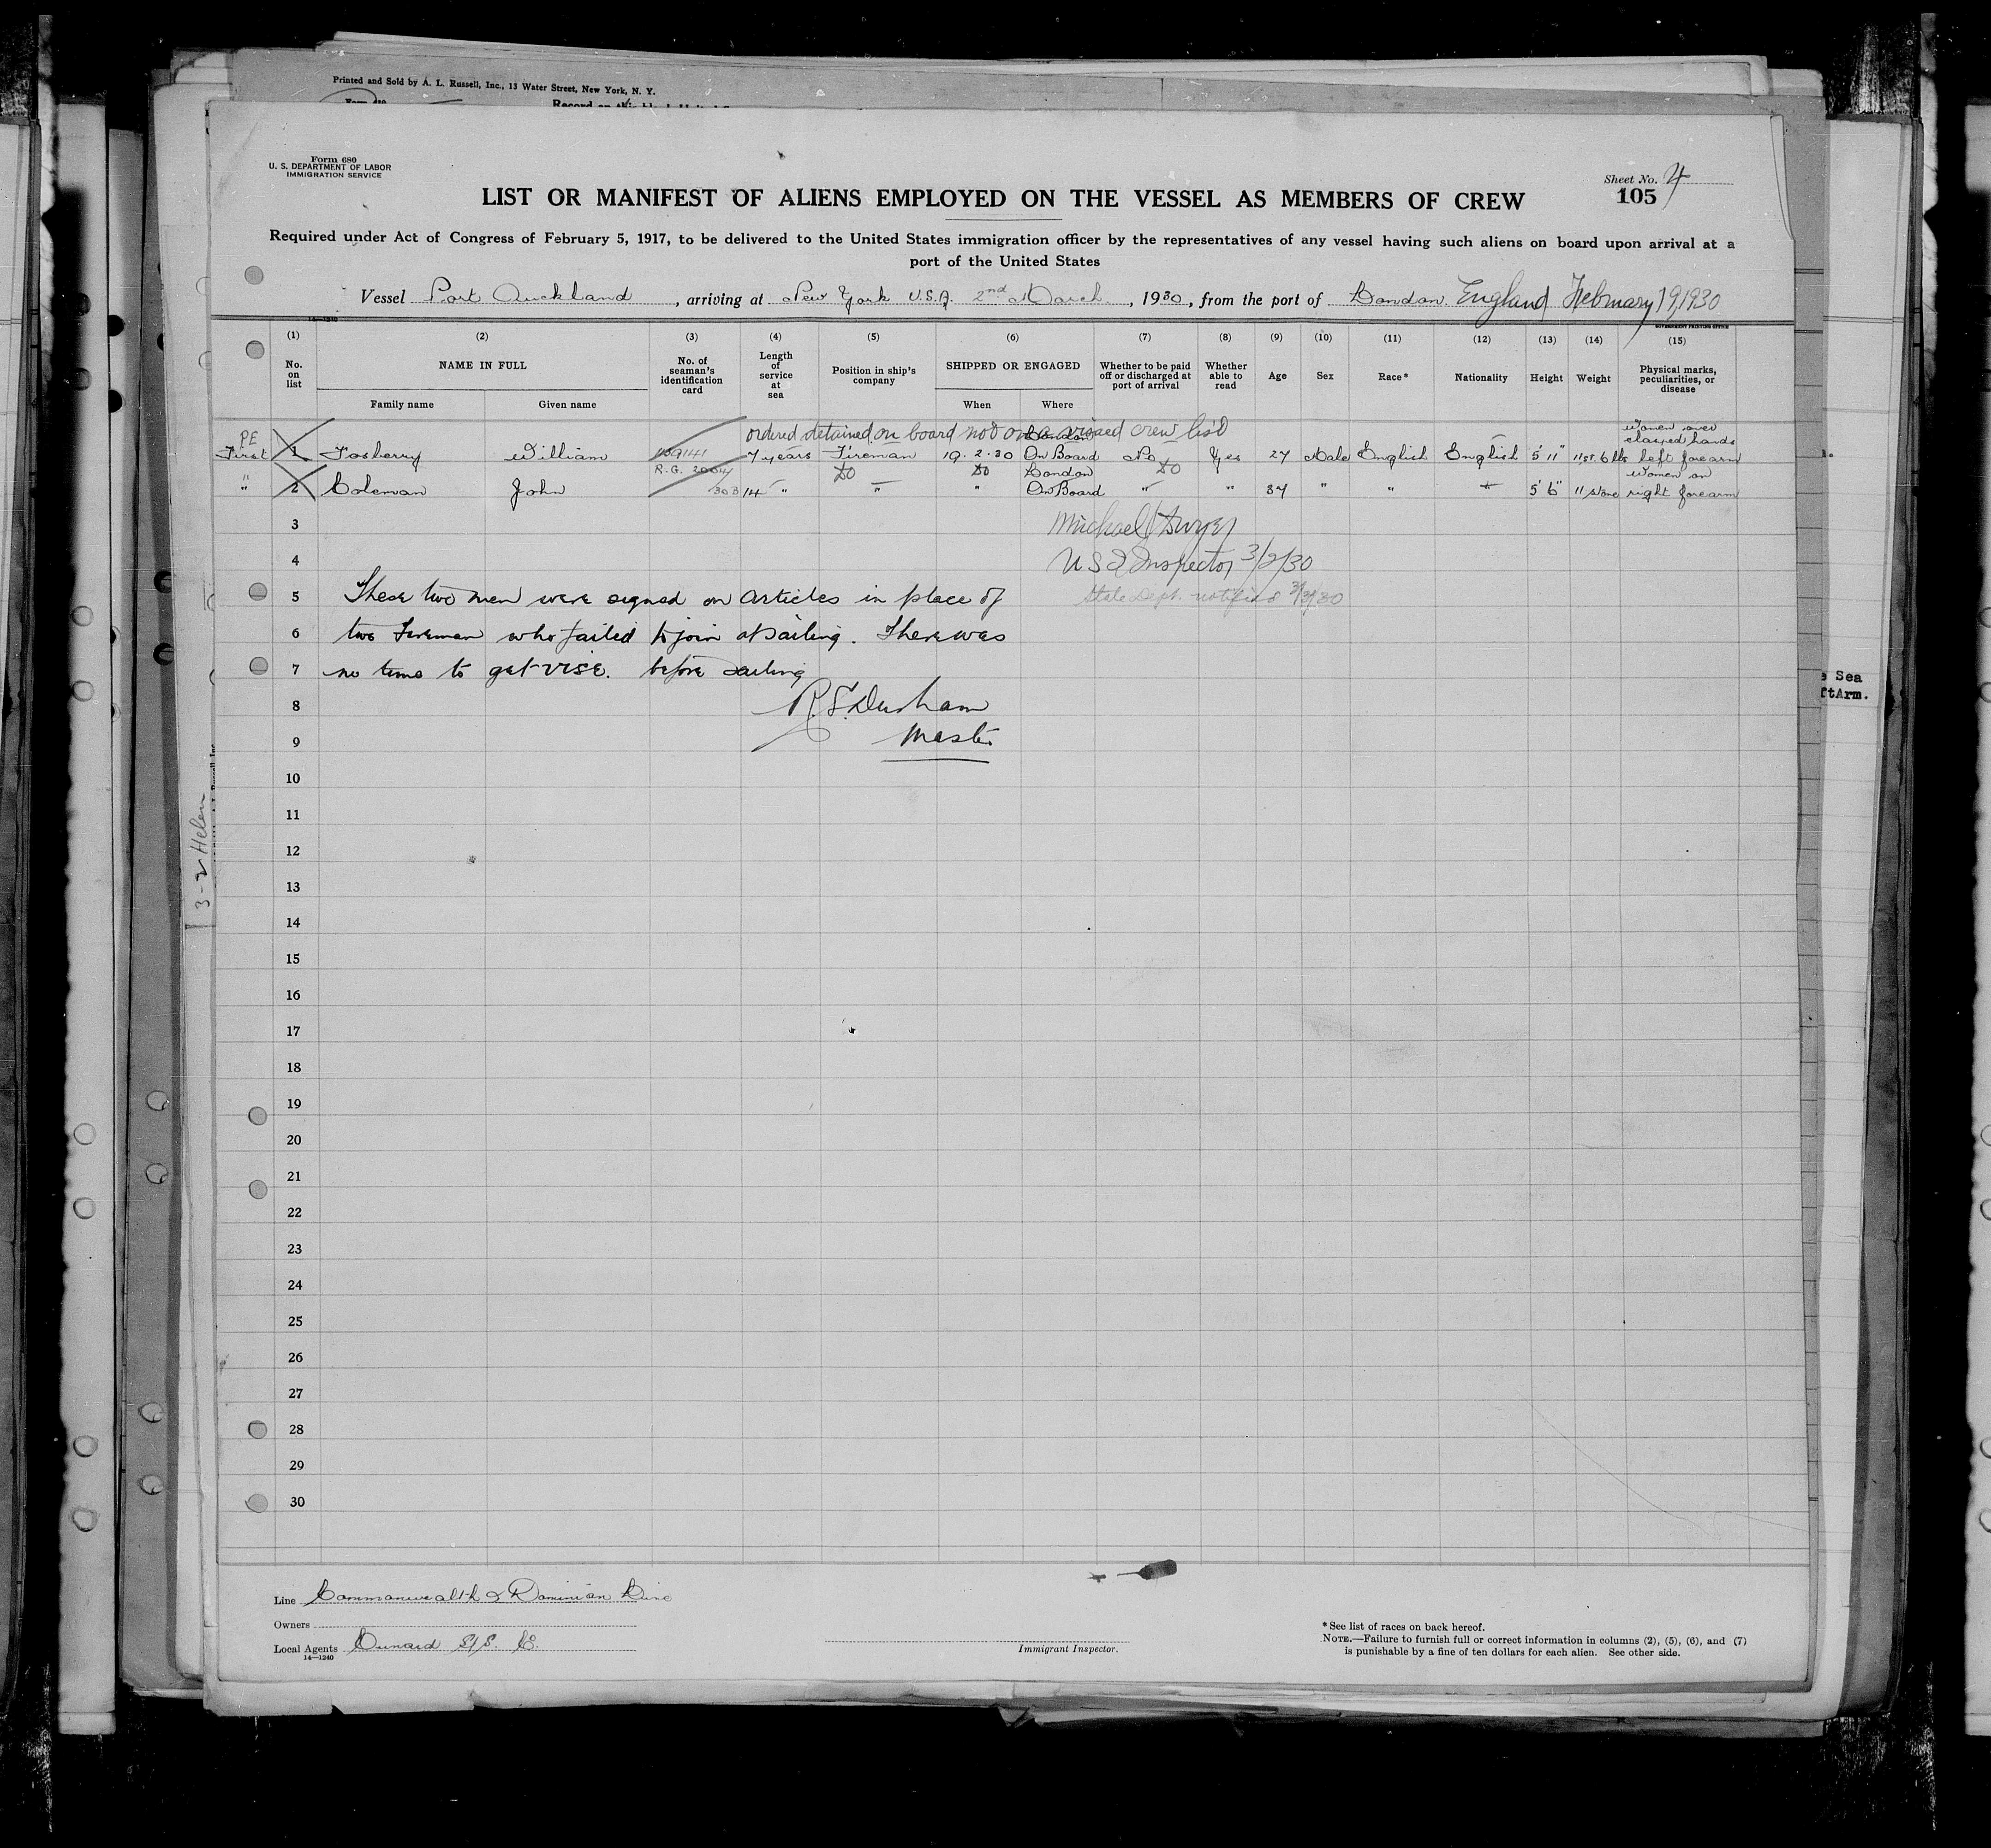 Printed and Sold by A. L. Russell, Inc., 13 Water Street, New York, N. Y.
Form 680
U. S. DEPARTMENT OF LABOR
IMMIGRATION SERVICE
Sheet No. 4
105
LIST OR MANIFEST OF ALIENS EMPLOYED ON THE VESSEL AS MEMBERS OF CREW
Required under Act of Congress of February 5, 1917, to be delivered to the United States immigration officer by the representatives of any vessel having such aliens on board upon arrival at a
port of the United States
Vessel Port Auckland, arriving at New York U.S.A. 2nd March, 1930, from the port of London. England February 19, 1930
(1) (2) (3) (4) (5) (6) (7) (8) (9) (10) (11) (12) (13) (14) (15)
No. on list
NAME IN FULL
Family name Given name
No. of seaman's identification card
Length of service at sea
Position in ship's company
SHIPPED OR ENGAGED
When Where
Whether to be paid off or discharged at port of arrival
Whether able to read
Age
Sex
Race*
Nationality
Height
Weight
Physical marks, peculiarities, or disease
ordered detained on board not on a visaed crew list
PE
First 1 Fosberry William 7 years Fireman 19.2.30 London On Board No Yes 27 Male English English 5' 11" 11 st. 6 lbs women over clasped hands left forearm
R.G.
" 2 Coleman John 14 " Do " Do " London On Board Do " " 37 " " " 5' 6" 11 stone women on right forearm
3 Michael Dwyer
4 U S I Inspector 3/2/30
5 These two men were signed on articles in place of State Dept. notified 3/3/30
6 two fireman who failed to join at sailing. There was
7 no time to get vise. before sailing
8 R. S. Durham
9 Master
10
11
12
13
14
15
16
17
18
19
20
21
22
23
24
25
26
27
28
29
30
3-2 Helen
Sea
ftArm.
Line Commonwealth & Dominion Line
Owners
Local Agents Cunard S/S. Co.
14—1240
Immigrant Inspector.
* See list of races on back hereof.
NOTE.—Failure to furnish full or correct information in columns (2), (5), (6), and (7)
is punishable by a fine of ten dollars for each alien. See other side.